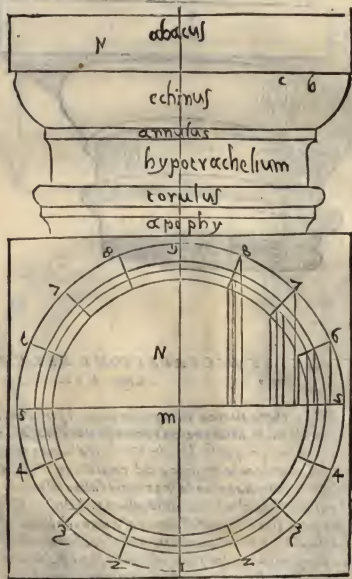 abacus
N
c b
echinus
annulus
hypotrachelium
torulus
apophy
9
8 8
7 7
6 6
N
5 m 5
4 4
3 3
2 2
1